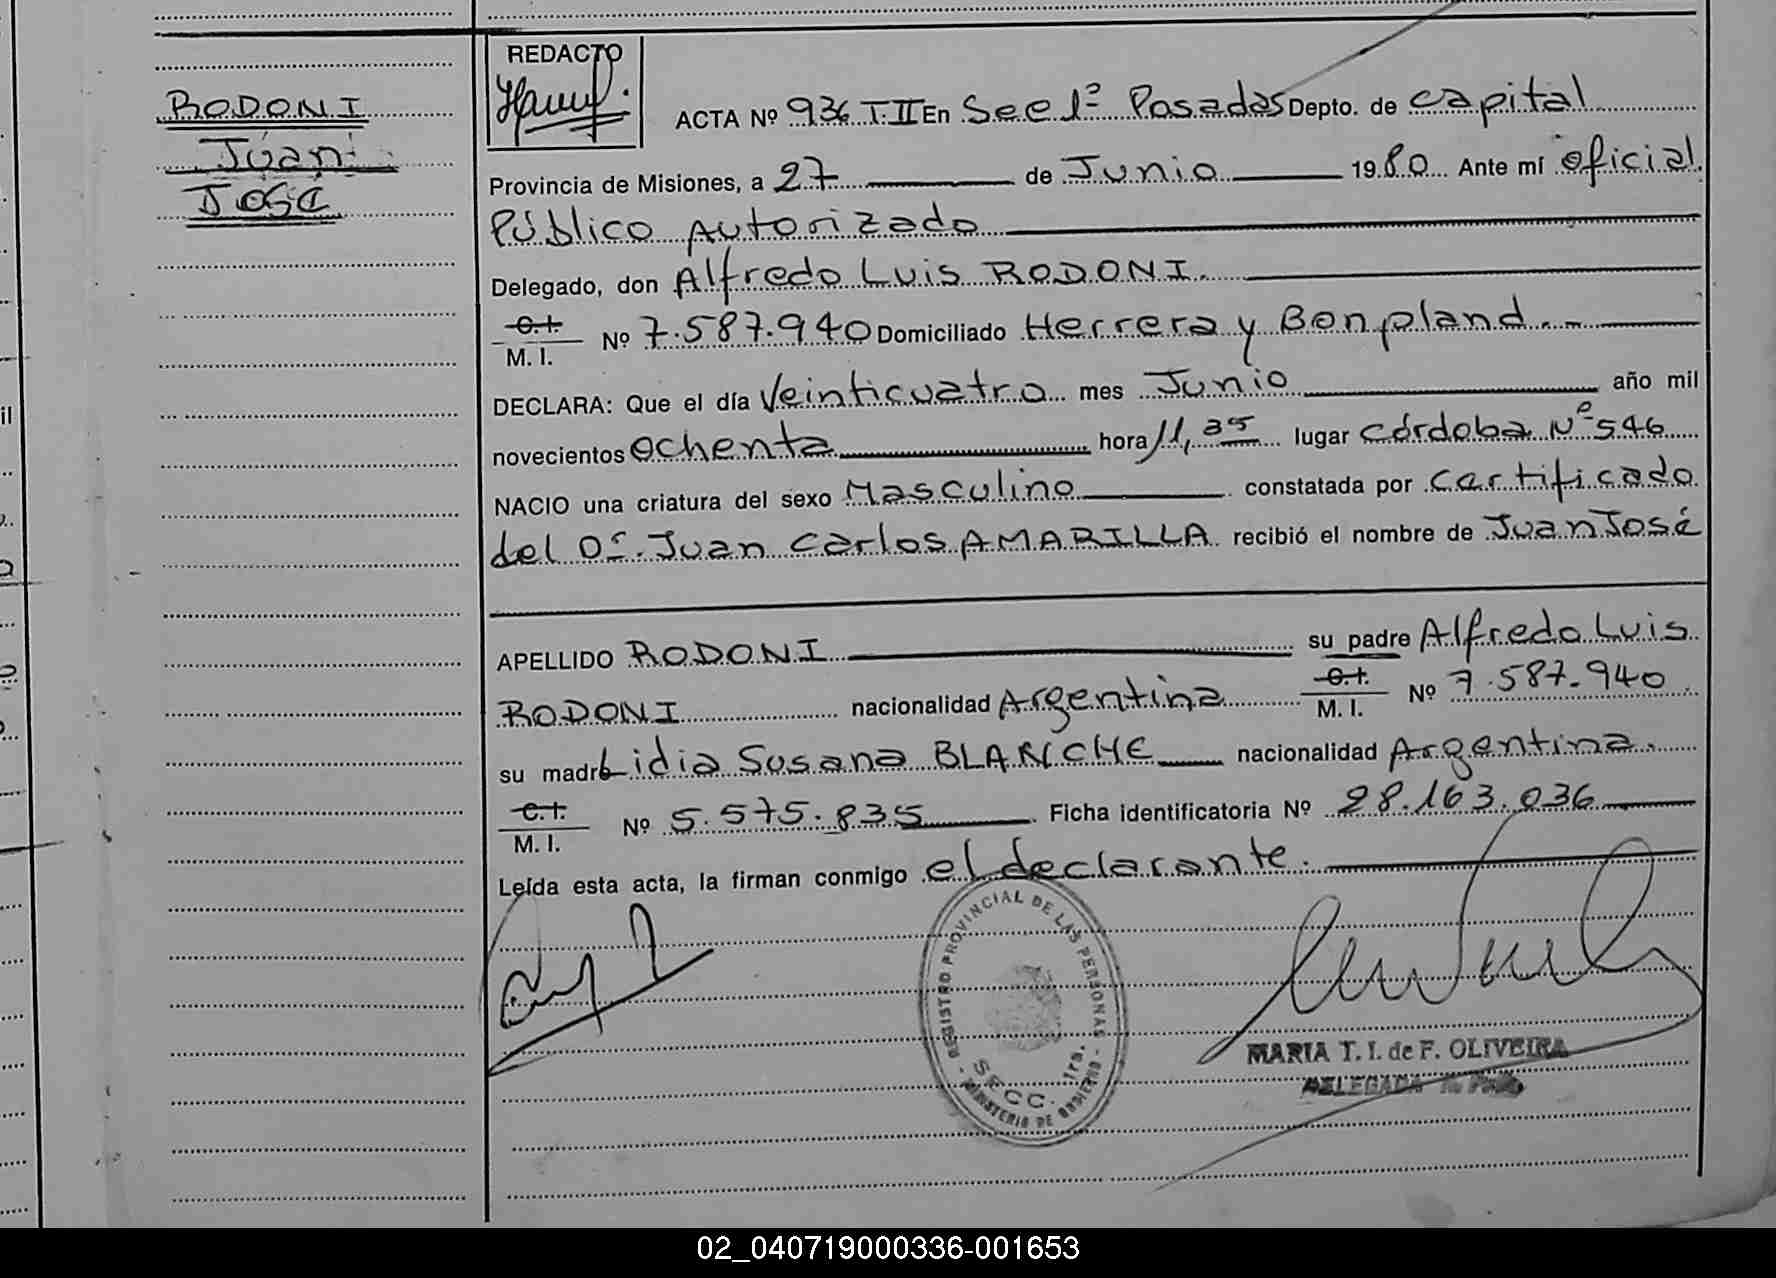 RODONI
Juan
José
REDACTO
ACTA Nº 936 T II En Secc 1ª Posadas Depto. de Capital
Provincia de Misiones, a 27 de Junio 1980 Ante mí oficial
Público Autorizado
Delegado, don Alfredo Luis RODONI.
C.I.
M. I. Nº 7.587.940 Domiciliado Herrera y Bonpland.-
DECLARA: Que el día Veinticuatro mes Junio año mil
novecientos ochenta hora 11,35 lugar Córdoba Nº 546
NACIO una criatura del sexo Masculino constatada por certificado
del Dr. Juan Carlos AMARILLA recibió el nombre de Juan José
APELLIDO RODONI su padre Alfredo Luis
RODONI nacionalidad Argentina C.I. M. I. Nº 7.587.940
su madre Lidia Susana BLANCHE nacionalidad Argentina.
C.I.
M. I. Nº 5.575.835 Ficha identificatoria Nº 28.163.036
Leída esta acta, la firman conmigo el declarante.
- REGISTRO PROVINCIAL DE LAS PERSONAS -
SECC. 1ra.
MINISTERIO DE GOBIERNO
MARIA T. I. de F. OLIVEIRA
DELEGADA
02_040719000336-001653